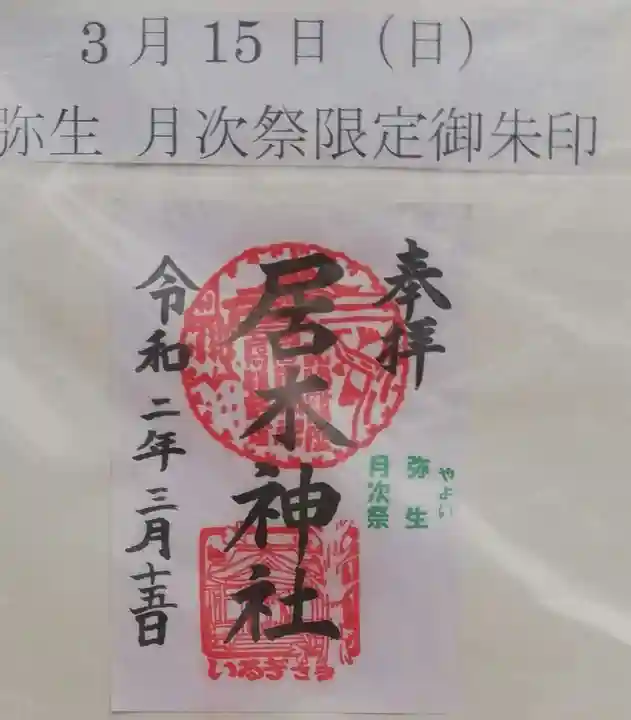 3月15日（日）
弥生 月次祭限定御朱印
奉拝
やよい
弥生
月次祭
居木神社
令和二年三月十五日
いるぎさる